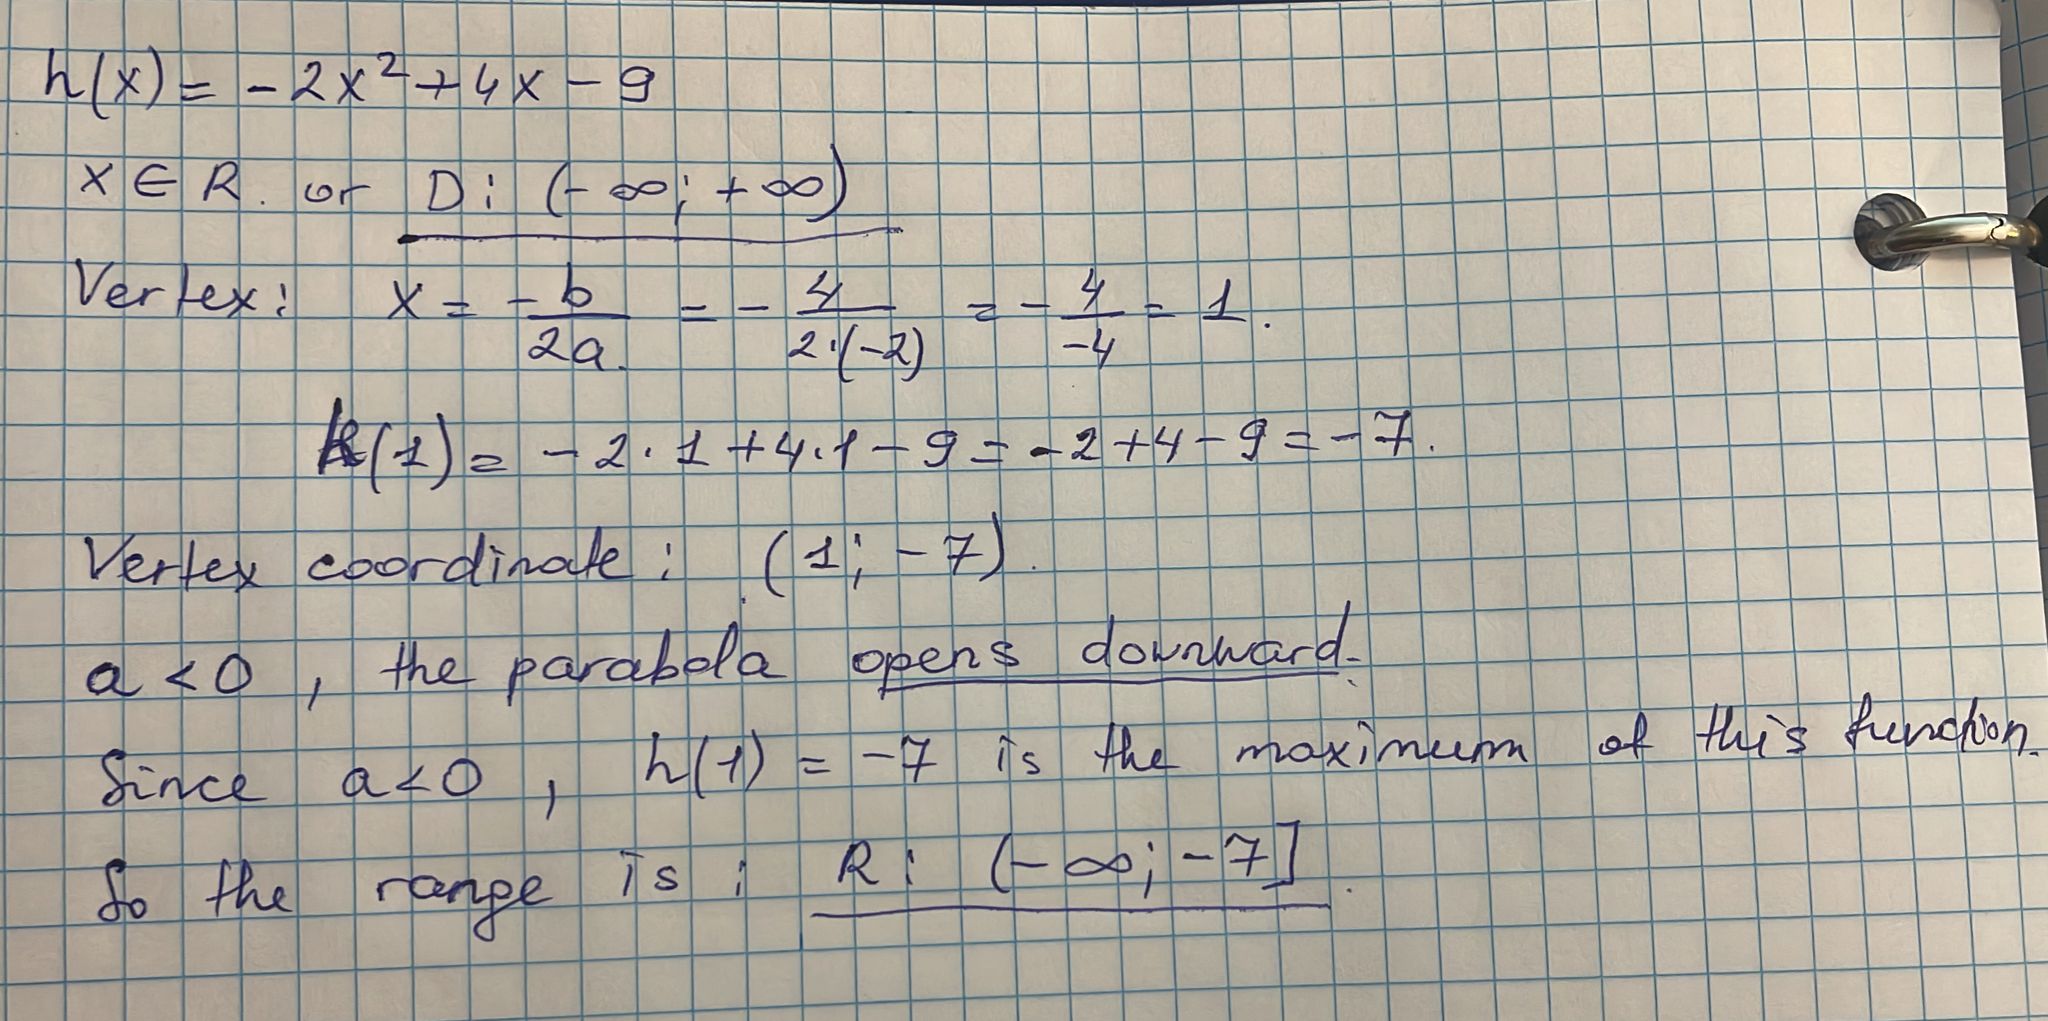 h(x) = -2x² + 4x - 9
x ∈ R. or D: (-∞; +∞)
Vertex: x = -b/2a. = - 4/2·(-2) = - 4/-4 = 1.
h(1) = -2·1 + 4·1 - 9 = -2 + 4 - 9 = -7.
Vertex coordinate: (1; -7).
a < 0, the parabola opens downward.
Since a < 0, h(1) = -7 is the maximum of this function.
So the range is: R: (-∞; -7].